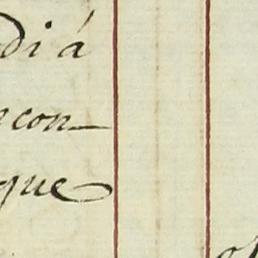 di á
con-
que